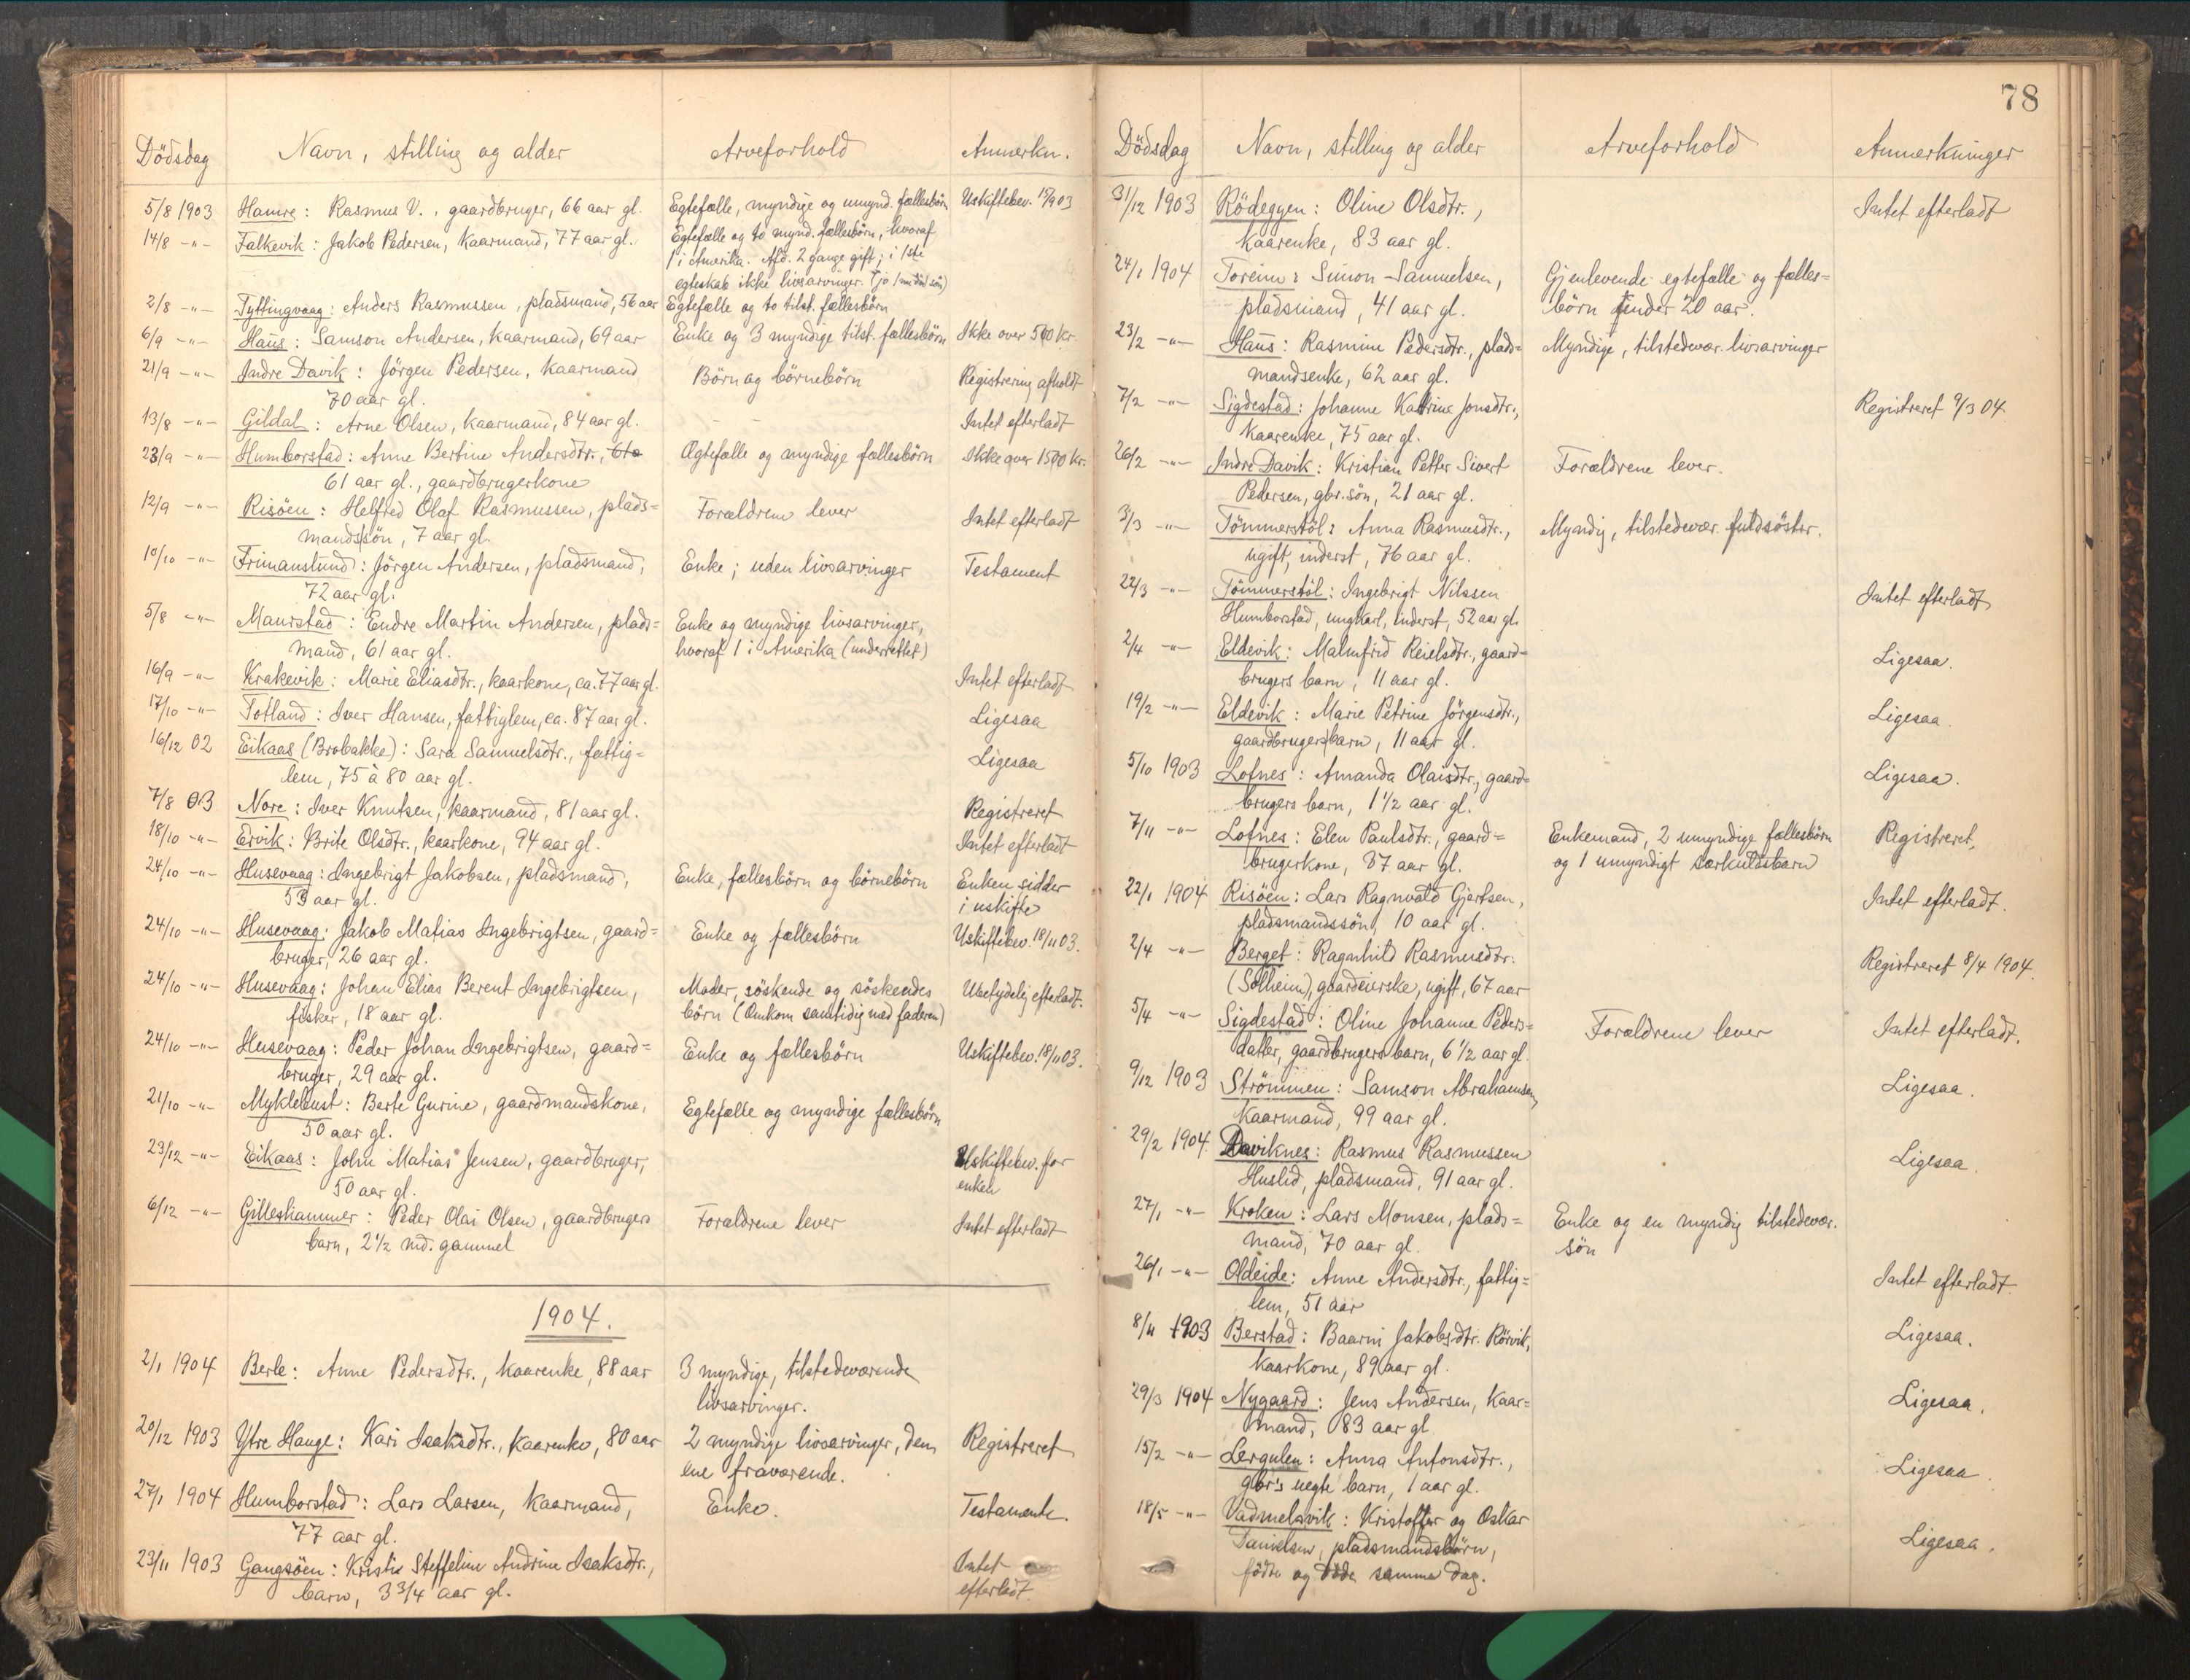 Dödsdag Navn, stilling og alder Arveforhold Anmerkn.
5/8 1903 Hamre: Rasmus V., gaardbruger, 66 aar gl. Egtefælle, myndige og umynd. fællesbörn Uskiftebev. 15/9 03
14/8 -"- Falkevik: Jakob Pedersen, Kaarmand, 77 aar gl. Egtefælle og to mynd. fællesbörn, hvoraf
1 i Amerika. Afd. 2 gange gift; i 1ste
egteskab ikke livsarvinger.
2/8 -"- Tyttingvaag: Anders Rasmussen, pladsmand, 56 aar Egtefælle og to tilst. fællesbörn
6/9 -"- Haus: Samson Andersen, Kaarmand, 69 aar Enke og 3 myndige tilst. fællesbörn Ikke over 500 Kr.
21/9 -"- Indre Davik: Jörgen Pedersen, Kaarmand Börn og börnebörn Registrering afholdt
70 aar gl.
13/8 -"- Gildal: Arne Olsen, kaarmand, 84 aar gl. - - Intet efterladt
23/9 -"- Humborstad: Anne Bertine Andersdtr., Ægtefælle og myndige fællesbörn Ikke over 1500 Kr.
61 aar gl., gaardbrugerkone
12/9 -"- Risöen: Helfred Olaf Rasmussen, plads= Forældrene lever Intet efterladt
mandssön, 7 aar gl.
10/10 -"- Frimanslund: Jörgen Andersen, pladsmand, Enke; uden livsarvinger Testament
72 aar gl.
5/8 -"- Maurstad: Endre Martin Andersen, plads= Enke og myndige livsarvinger,
mand, 61 aar gl. hvoraf 1 i Amerika (underrettet)
16/9 -"- Krakevik: Marie Eliasdtr., kaarkone, ca. 77 aar gl. Intet efterladt
17/10 -"- Totland: Iver Hansen, fattiglem, ca. 87 aar gl. Ligesaa
16/12 02 Eikaas (Brobakke): Sara Samuelsdtr., fattig= Ligesaa
lem, 75 à 80 aar gl.
7/8 03 Nore: Iver Knutsen, kaarmand, 81 aar gl. Registreret
18/10 -"- Ervik: Brite Olsdtr., kaarkone, 94 aar gl. Intet efterladt
24/10 -"- Husevaag: Ingebrigt Jakobsen, pladsmand, Enke, fællesbörn og börnebörn Enken sidder
53 aar gl. i uskifte
24/10 -"- Husevaag: Jakob Matias Ingebrigtsen, gaard= Enke og fællesbörn Uskiftebev. 18/11 03.
bruger, 26 aar gl.
24/10 -"- Husevaag: Johan Elias Berent Ingebrigtsen, Moder, söskende og söskendes Ubetydelig efterladt.
fisker, 18 aar gl. börn (Omkom samtidig med faderen)
24/10 -"- Husevaag: Peder Johan Ingebrigtsen, gaard= Enke og fællesbörn Uskiftebev. 18/11 03.
bruger, 29 aar gl.
21/10 -"- Myklebust: Berte Gurine, gaardmandskone, Egtefælle og myndige fællesbörn
50 aar gl.
23/12 -"- Eikaas: John Matias Jensen, gaardbruger, Uskiftebev. for
50 aar gl. enken
6/12 -"- Gilleshammer: Peder Olai Olsen, gaardbrugers Forældrene lever Intet efterladt
barn, 2 1/2 md. gammel
1904.
2/1 1904 Berle: Anne Pedersdtr., Kaarenke, 88 aar 3 myndige, tilstedeværende
livsarvinger.
20/12 1903 Ytre Hauge: Kari Isaksdtr., Kaarenke, 80 aar 2 myndige livsarvinger, den Registreret
ene fraværende.
27/1 1904 Humborstad: Lars Larsen, Kaarmand, Enke. Testamente.
77 aar gl.
23/11 1903 Gangsöen: Kristi Steffeline Andrine Isaksdtr., Intet
barn, 3 3/4 aar gl. efterladt.
78
Dödsdag Navn, stilling og alder Arveforhold Anmerkninger
31/12 1903 Rödeggen: Oline Olsdtr., Intet efterladt
kaarenke, 83 aar gl.
24/1 1904 Toreim: Simon Samuelsen, Gjenlevende egtefælle og fælles=
pladsmand, 41 aar gl. börn under 20 aar.
23/2 -"- Haus: Rasmine Pedersdtr., plads= Myndige, tilstedevær. livsarvinger
mandsenke, 62 aar gl.
7/2 -"- Sigdestad: Johanne Katrine Jonsdtr., Registreret 9/3 04.
Kaarenke, 75 aar gl.
26/2 -"- Indre Davik: Kristian Petter Sivert Forældrene lever.
Pedersen, gbr.sön, 21 aar gl.
3/3 -"- Tömmerstöl: Anna Rasmusdtr., Myndig, tilstedevær. fuldsöster.
ugift, inderst, 76 aar gl.
22/3 -"- Tömmerstöl: Ingebrigt Nilssen Intet efterladt
Humborstad, ungkarl, inderst, 52 aar gl.
2/4 -"- Eldevik: Malmfrid Reielsdtr., gaard= Ligesaa.
brugers barn, 11 aar gl.
19/2 -"- Eldevik: Marie Petrine Jörgensdtr., Ligesaa.
gaardbrugers barn, 11 aar gl.
5/10 1903 Lofnes: Amanda Olaisdtr., gaard= Ligesaa.
brugers barn, 1 1/2 aar gl.
7/11 -"- Lofnes: Elen Paulsdtr., gaard= Enkemand, 2 umyndige fællesbörn Registreret,
brugerkone, 37 aar gl. og 1 umyndigt særkuldsbarn
22/1 1904 Risöen: Lars Ragnvald Gjertsen, Intet efterladt.
pladsmandssön, 10 aar gl.
2/4 -"- Berget: Ragnhild Rasmusdtr. Registreret 8/4 1904.
(Solheim), gaardeierske, ugift, 67 aar
5/4 -"- Sigdestad: Oline Johanne Peders= Forældrene lever Intet efterladt.
datter, gaardbrugers barn, 6 1/2 aar gl.
9/12 1903 Strömmen: Samson Abrahamsen, Ligesaa.
Kaarmand, 99 aar gl.
29/2 1904 Daviknes: Rasmus Rasmussen Ligesaa.
Huslid, pladsmand, 91 aar gl.
27/1 -"- Kroken: Lars Monsen, plads= Enke og en myndig tilstedevær.
mand, 70 aar gl. sön
26/1 -"- Oldeide: Anne Andersdtr., fattig= Intet efterladt.
lem, 51 aar
8/11 1903 Berstad: Baarni Jakobsdtr. Rörvik, Ligesaa.
kaarkone, 89 aar gl.
29/3 1904 Nygaard: Jens Andersen, Kaar= Ligesaa.
mand, 83 aar gl.
15/2 -"- Lergulen: Anna Antonsdtr., Ligesaa.
gbr's uegte barn, 1 aar gl.
18/5 -"- Vadmelsvik: Kristoffer og Oskar Ligesaa.
Danielsen, pladsmandsbörn,
födte og döde samme dag.